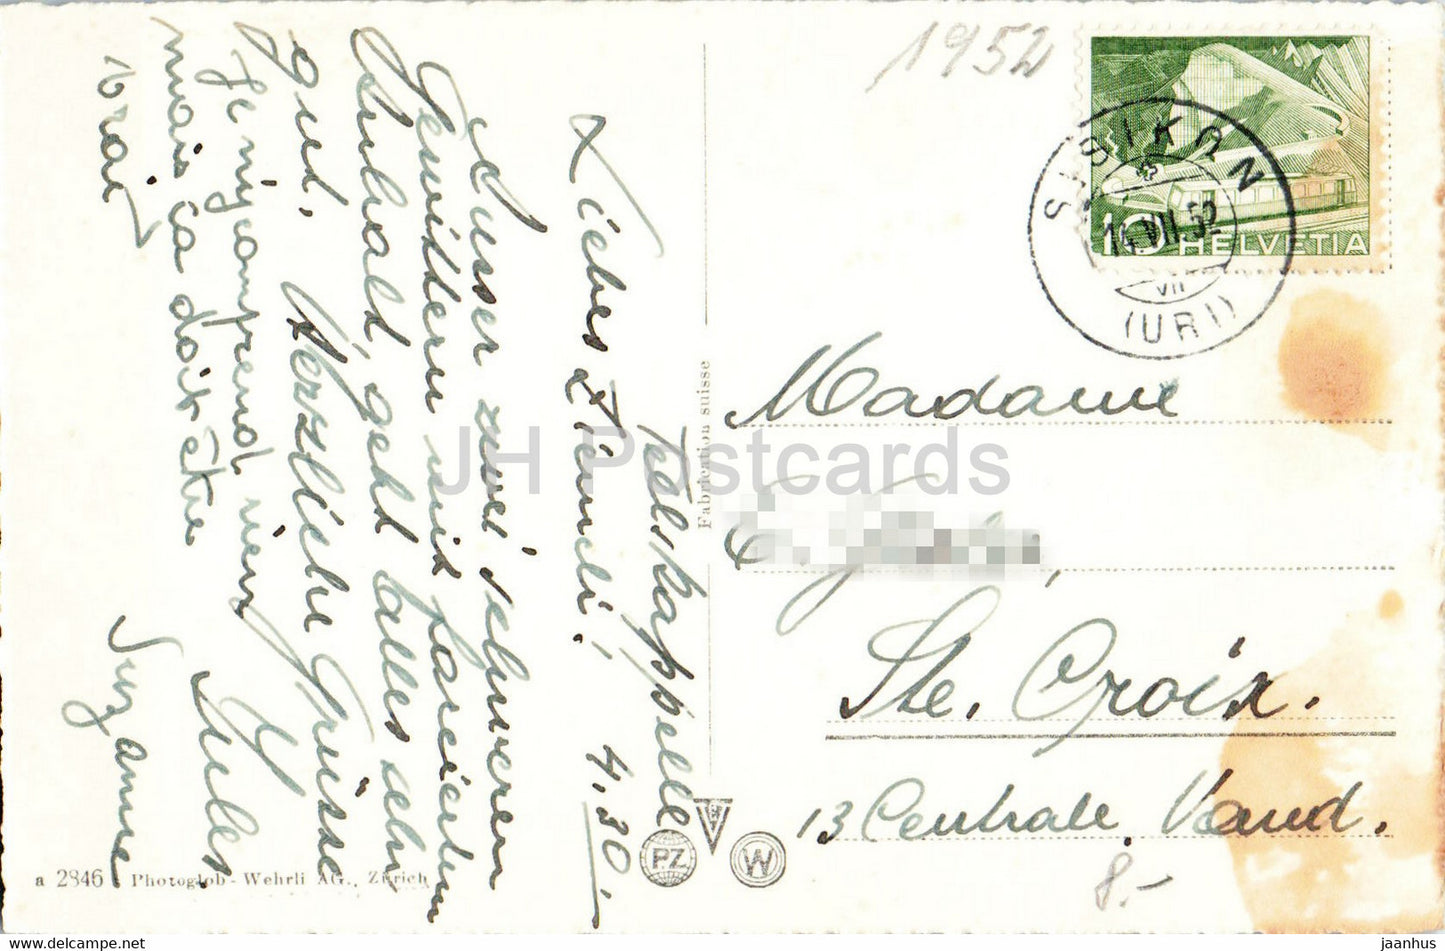 1952
SISIKON
14.VII.52
VII
(URI)
10 HELVETIA
Madame
Ste. Croix.
13 Centrale, Vaud.
8.-
Tellskappelle
Liebes Hanneli! 4.30.
Ausser zwei schweren
Gewittern mit
geht alles sehr
gut. Herzliche Grüsse
Jules
Je n'y comprend rien
mais ça doit être
vrai
Suzanne
Fabrication suisse
PZ
W
a 2846 Photoglob-Wehrli AG., Zürich
JH Postcards
www.delcampe.net
jaanhus